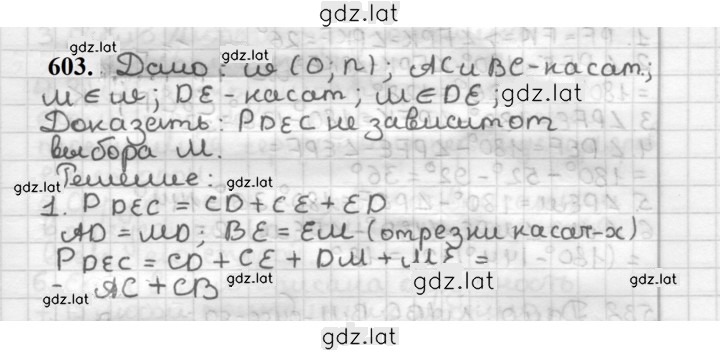 gdz.lat
gdz.lat gdz.lat
603. Дано: w (O; r); AC и BC - касат;
M ∈ w; DE - касат; M ∈ DE; gdz.lat
Доказать: PDEC не зависит от
выбора M.
gdz.lat gdz.lat
Решение: gdz.lat
1. P DEC = CD + CE + ED
AD = MD; BE = EM (отрезки касат-х)
P DEC = CD + CE + DM + ME =
= AC + CB
gdz.lat gdz.lat gdz.lat gdz.lat
gdz.lat